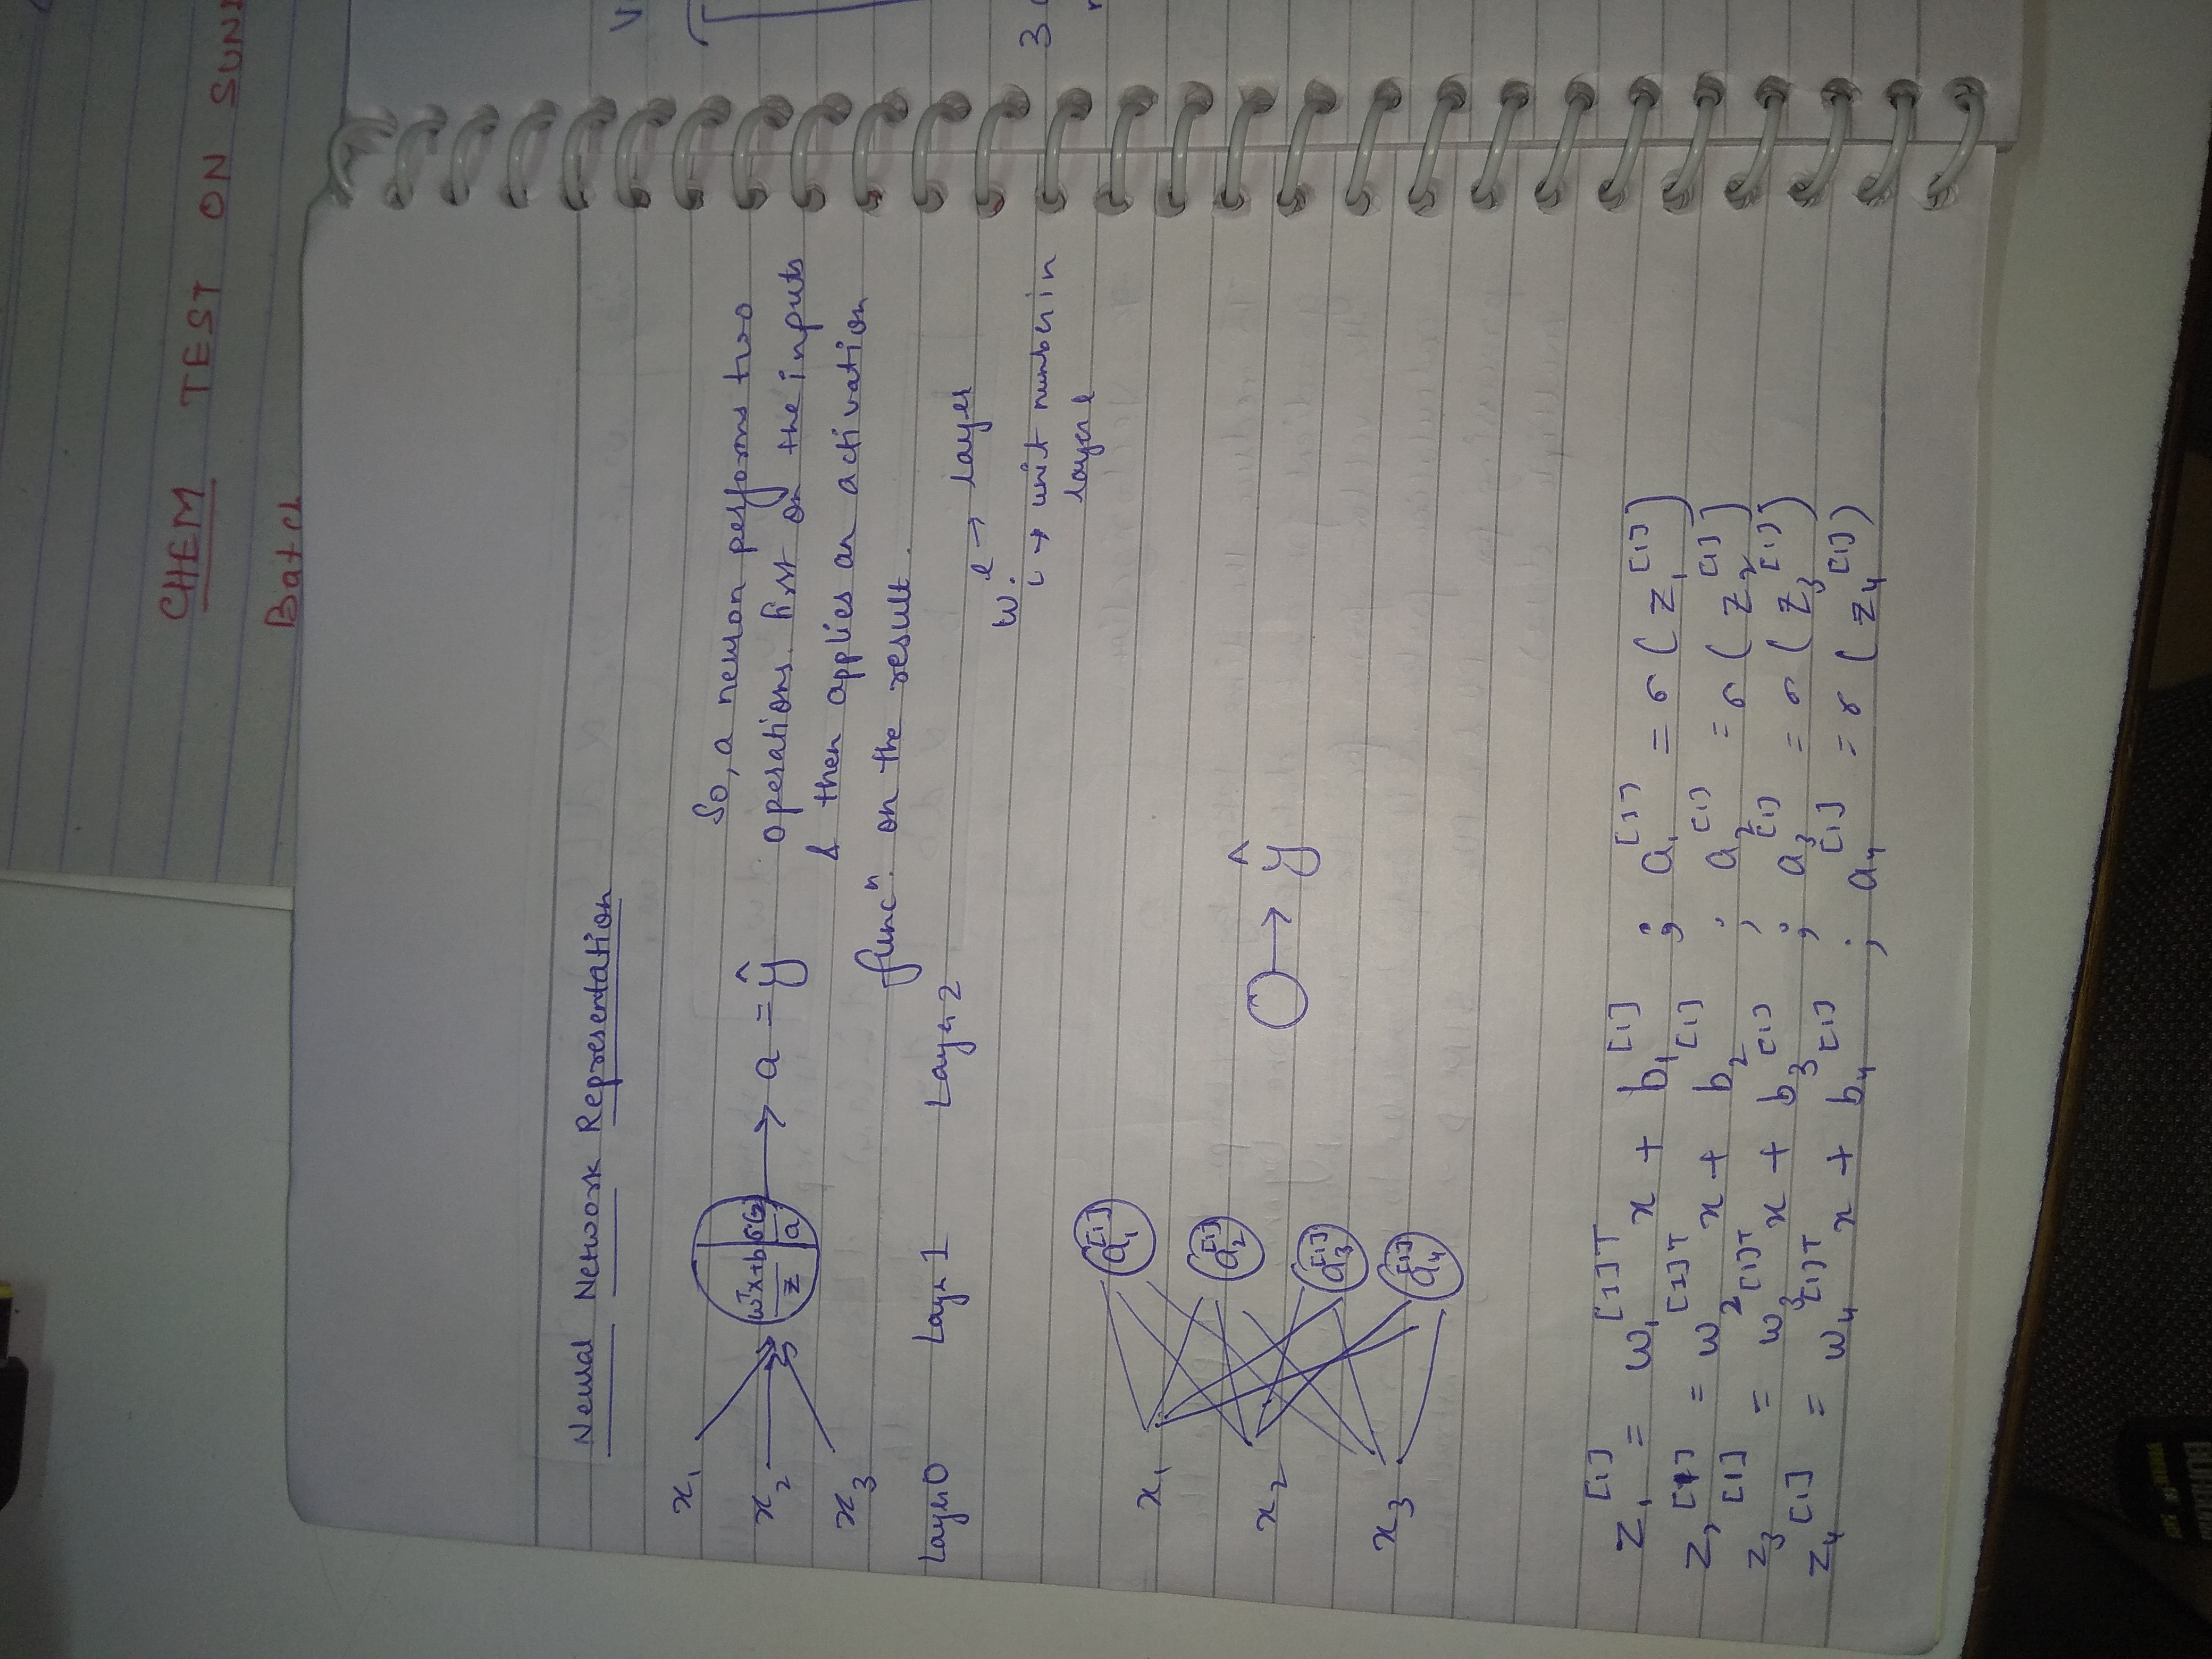 CHEM TEST ON SUN
Batch
Neural Network Representation
x₁
x₂
x₃
wᵀx+b | σ(z)
z | a
→ a = ŷ
So, a neuron performs two
operations. first on the inputs
& then applies an activation
funcⁿ. on the result.
Layer 0 Layer 1 Layer 2
wᵢˡ
l → layer
i → unit number in
layer l
x₁
x₂
x₃
a₁^[1]
a₂^[1]
a₃^[1]
a₄^[1]
→ ŷ
z₁^[1] = w₁^[1]T x + b₁^[1] ; a₁^[1] = σ(z₁^[1])
z₂^[1] = w₂^[1]T x + b₂^[1] ; a₂^[1] = σ(z₂^[1])
z₃^[1] = w₃^[1]T x + b₃^[1] ; a₃^[1] = σ(z₃^[1])
z₄^[1] = w₄^[1]T x + b₄^[1] ; a₄^[1] = σ(z₄^[1])